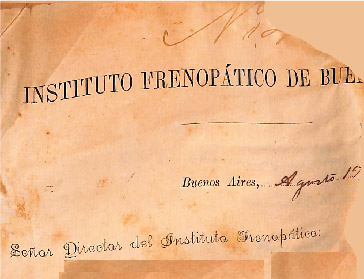 INSTITUTO FRENOPÁTICO DE BUE
Buenos Aires, Agosto 15
Señor Director del Instituto Frenopático: